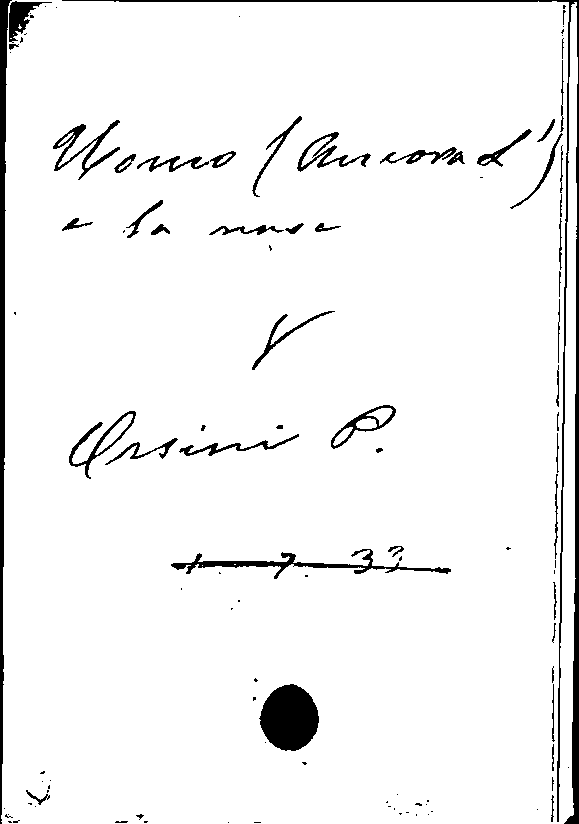 Uomo (Ancora L')
e la nose
V
Orsini P.
1 7 33